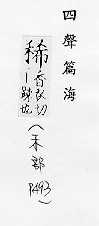 四聲篇海
稀香衣切｜踈也
（禾部
P.493）